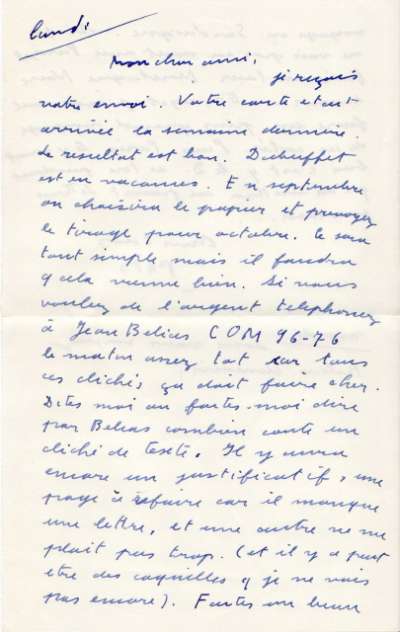 lundi
mon cher ami,
je reçois
votre envoi. Votre carte était
arrivée la semaine dernière.
Le résultat est bon. Dubuffet
est en vacances. En septembre
on choisira le papier et prévoyez
le tirage pour octobre. Ce sera
tout simple mais il faudra
q cela vienne bien. Si vous
voulez de l'argent telephonez
à Jean Belias COM 96-76
le matin assez tot car tous
ces clichés, ça doit faire cher.
Dites moi ou faites-moi dire
par Belias combien coute un
cliché de texte. Il y aura
encore un justificatif, une
page à refaire car il manque
une lettre, et une autre ne me
plait pas trop. (et il y a peut
etre des coquilles q je ne vois
pas encore). Faites un beau